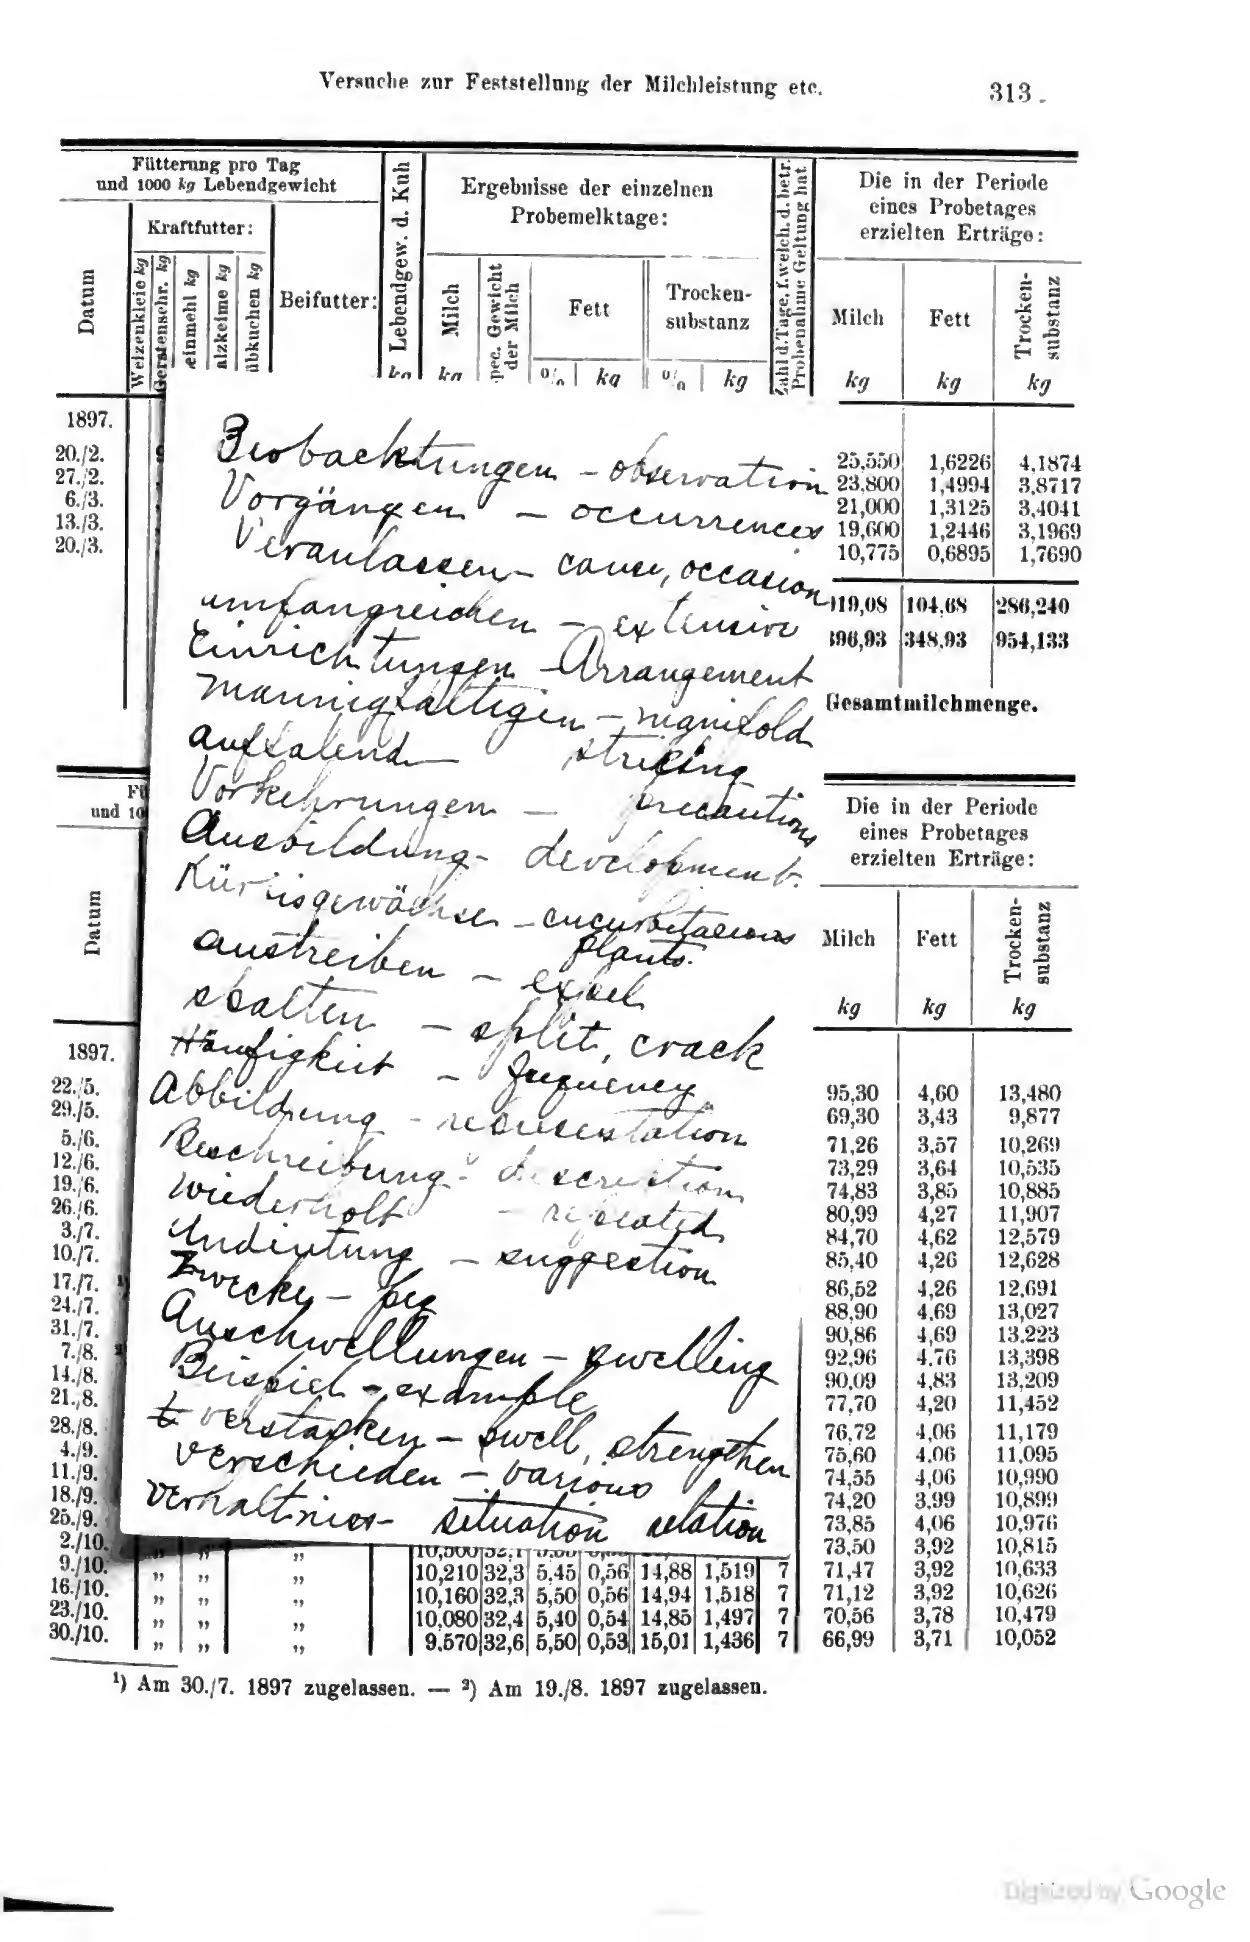 Versuche zur Feststellung der Milchleistung etc. 313
Fütterung pro Tag
und 1000 kg Lebendgewicht
Datum
Kraftfutter:
Weizenkleie kg
Gerstenschr. kg
einmehl kg
alzkeime kg
übkuchen kg
Beifutter:
Lebendgew. d. Kuh
kg
Ergebnisse der einzelnen
Probemelktage:
Milch
kg
pec. Gewicht
der Milch
Fett
% kg
Trocken-
substanz
% kg
Zahl d. Tage, f. welch. d. betr.
Probenahme Geltung hat
Die in der Periode
eines Probetages
erzielten Erträge:
Milch Fett Trocken-
substanz
kg kg kg
1897.
20./2. 25,550 1,6226 4,1874
27./2. 23,800 1,4994 3,8717
6./3. 21,000 1,3125 3,4041
13./3. 19,600 1,2446 3,1969
20./3. 10,775 0,6895 1,7690
119,08 104,68 286,240
396,93 348,93 954,133
Gesamtmilchmenge.
Beobachtungen - observation
Vorgängen - occurrences
Veranlassen - cause, occasion
umfangreichen - extensive
Einrichtungen - Arrangement
mannigfaltigen - manifold
auffalend - striking
Vorkehrungen - precautions
Ausbildung - development.
Kürbisgewächse - cucurbitaceous
plants.
austreiben - expel
spalten - split, crack
Häufigkeit - frequency
Abbildung - representation
Beschreibung - description
wiederholt - repeated
Andeutung - suggestion
Zwecke - peg
Anschwellungen - swelling
Beispiel - example
verstarken - swell, strengthen
verschieden - various
verhaltniss - situation relation
und 10
Datum
Die in der Periode
eines Probetages
erzielten Erträge:
Milch Fett Trocken-
substanz
kg kg kg
1897.
22./5. 95,30 4,60 13,480
29./5. 69,30 3,43 9,877
5./6. 71,26 3,57 10,269
12./6. 73,29 3,64 10,535
19./6. 74,83 3,85 10,885
26./6. 80,99 4,27 11,907
3./7. 84,70 4,62 12,579
10./7. 85,40 4,26 12,628
17./7. ¹) 86,52 4,26 12,691
24./7. 88,90 4,69 13,027
31./7. 90,86 4,69 13,223
7./8. ² 92,96 4,76 13,398
14./8. 90,09 4,83 13,209
21./8. 77,70 4,20 11,452
28./8. 76,72 4,06 11,179
4./9. 75,60 4,06 11,095
11./9. 74,55 4,06 10,990
18./9. 74,20 3,99 10,899
25./9. 73,85 4,06 10,976
2./10. 73,50 3,92 10,815
9./10. „ „ „ 10,210 32,3 5,45 0,56 14,88 1,519 7 71,47 3,92 10,633
16./10. „ „ „ 10,160 32,3 5,50 0,56 14,94 1,518 7 71,12 3,92 10,626
23./10. „ „ „ 10,080 32,4 5,40 0,54 14,85 1,497 7 70,56 3,78 10,479
30./10. „ „ „ 9,570 32,6 5,50 0,53 15,01 1,436 7 66,99 3,71 10,052
¹) Am 30./7. 1897 zugelassen. — ²) Am 19./8. 1897 zugelassen.
Digitized by Google